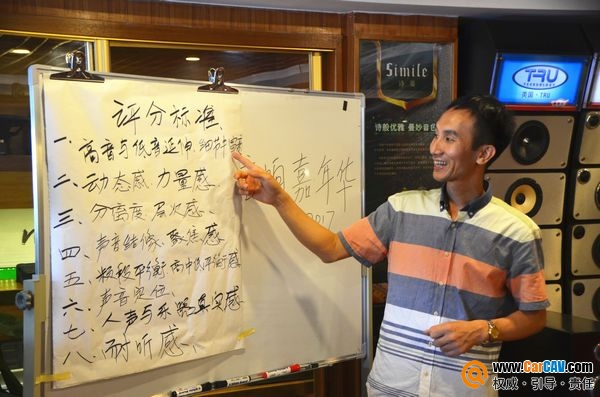 评分标准
一、高音与低音延伸 细节
二、动态感 力量感
三、分离度 层次感
四、声音结像 聚焦感
五、频段平衡 高中低平衡感
六、声音定位
七、人声与乐器真实感
八、耐听感、
嘉年华
2017
Simile
诗般优雅 曼妙音色
美国·TRU
www.CarCAV.com
权威·引导·责任